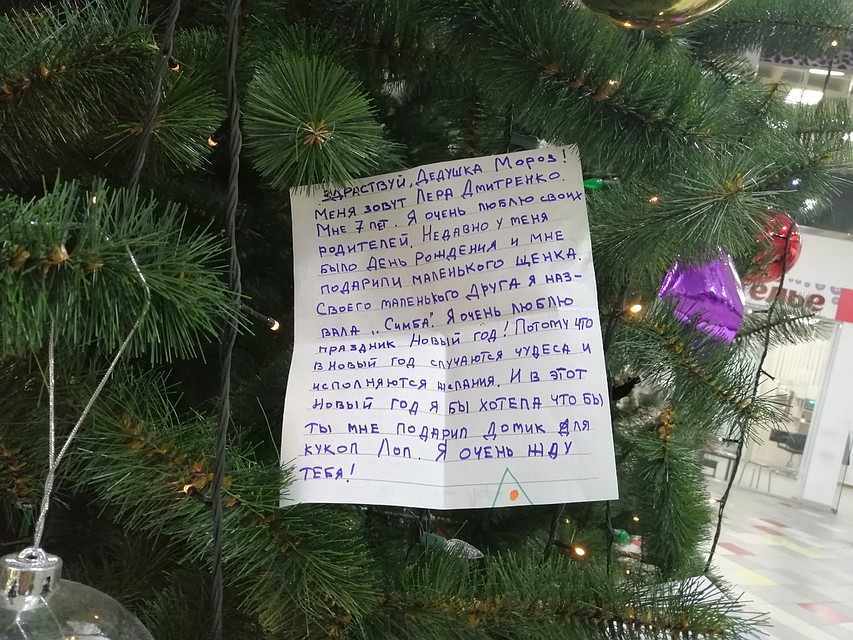 ЗДРАСТВУЙ, ДЕДУШКА МОРОЗ!
МЕНЯ ЗОВУТ ЛЕРА ДМИТРЕНКО.
МНЕ 7 ЛЕТ. Я ОЧЕНЬ ЛЮБЛЮ СВОИХ
РОДИТЕЛЕЙ. НЕДАВНО У МЕНЯ
БЫЛО ДЕНЬ РОЖДЕНИЯ И МНЕ
ПОДАРИЛИ МАЛЕНЬКОГО ЩЕНКА.
СВОЕГО МАЛЕНЬКОГО ДРУГА Я НАЗ-
ВАЛА „СИМБА". Я ОЧЕНЬ ЛЮБЛЮ
ПРАЗДНИК НОВЫЙ ГОД! ПОТОМУ ЧТО
В НОВЫЙ ГОД СЛУЧАЮТСЯ ЧУДЕСА И
ИСПОЛНЯЮТСЯ ЖЕЛАНИЯ. И В ЭТОТ
НОВЫЙ ГОД Я БЫ ХОТЕЛА ЧТО БЫ
ТЫ МНЕ ПОДАРИЛ ДОМИК ДЛЯ
КУКОЛ ЛОЛ. Я ОЧЕНЬ ЖДУ
ТЕБЯ!